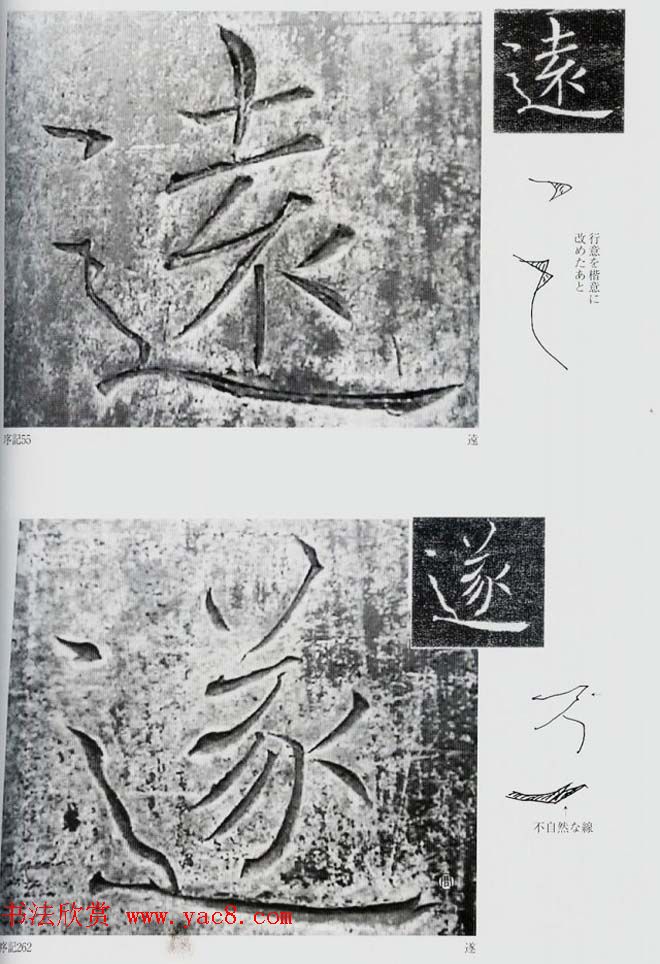 遠
遠
行意を楷意に
改めたあと
序記55
遠
遂
遂
不自然な線
书法欣赏 www.yac8.com
序記262
遂